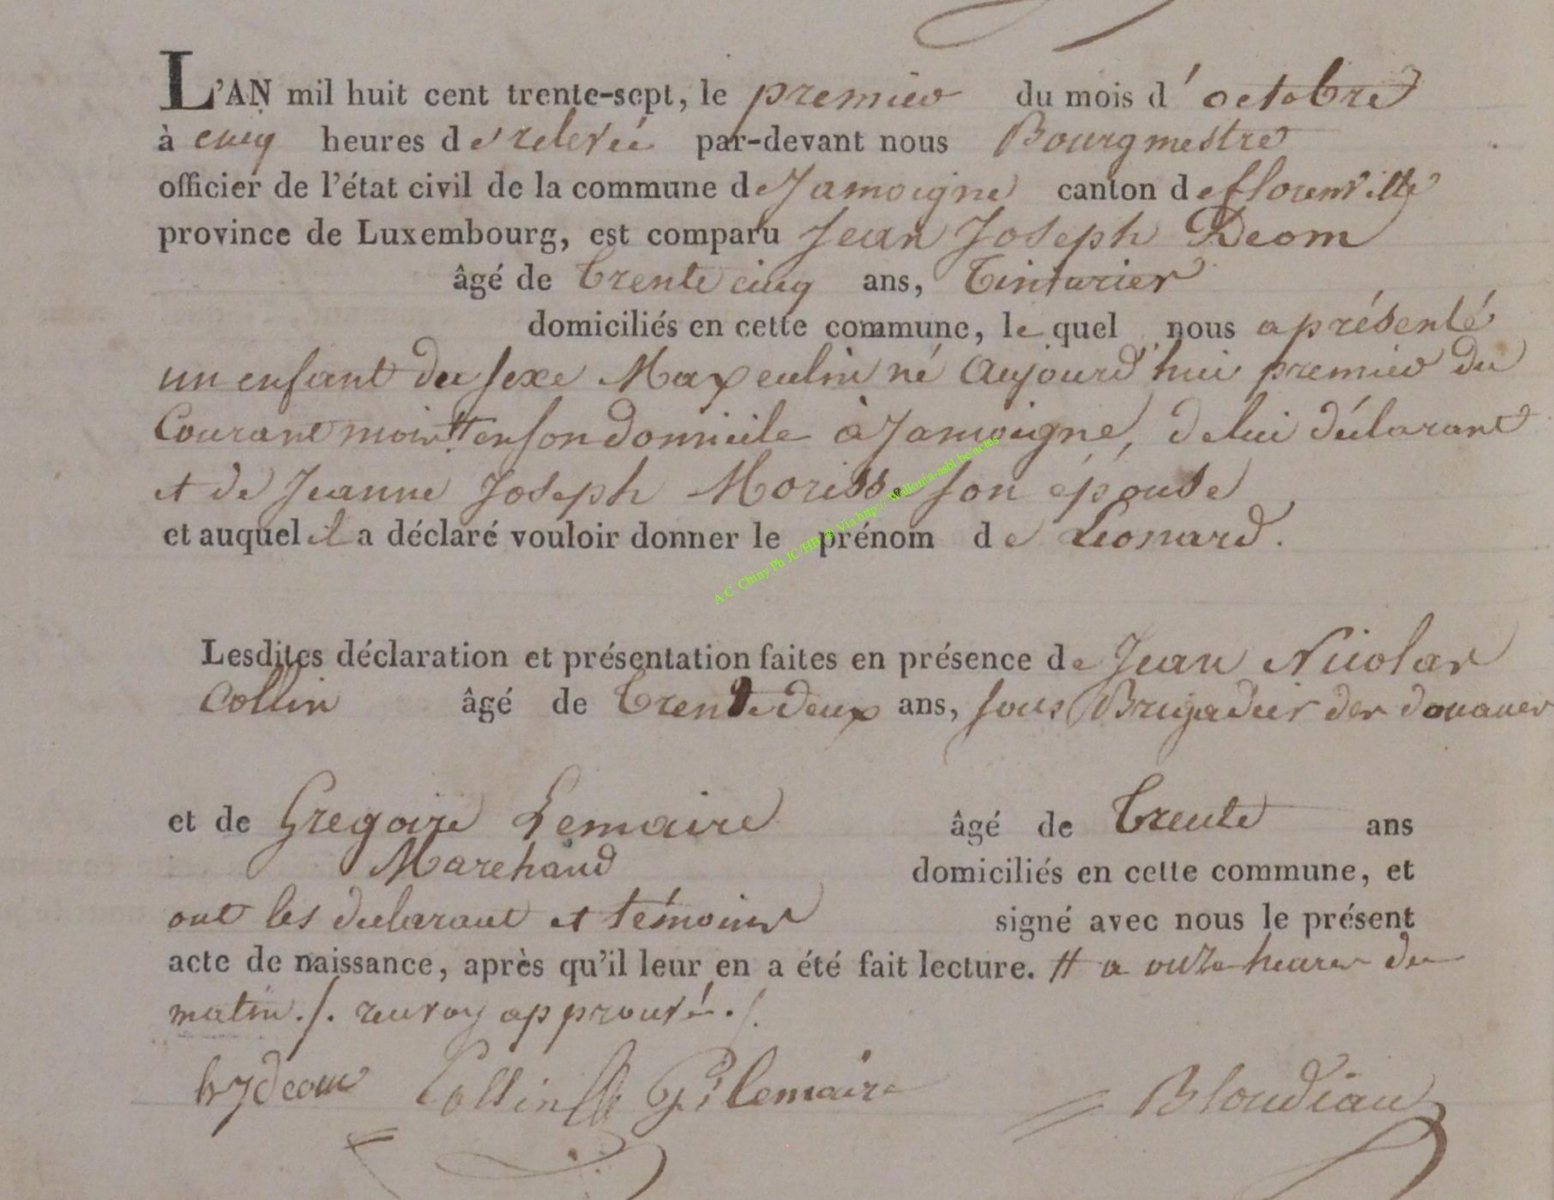 L'AN mil huit cent trente-sept, le premier du mois d'octobre
à cinq heures de relevée par-devant nous Bourgmestre
officier de l'état civil de la commune de Jamoigne canton de florenville
province de Luxembourg, est comparu Jean Joseph Deom
âgé de trente cinq ans, Tinturier
domiciliés en cette commune, le quel nous a présenté
un enfant du sexe Masculin né aujourd'hui premier du
Courant mois # en son domicile à Jamoigne, de lui déclarant
et de Jeanne Joseph Morisse son épouse
et auquel il a déclaré vouloir donner le prénom de Léonard.
Lesdites déclaration et présentation faites en présence de Jean Nicolas
Collin âgé de Trente deux ans, sous Brigadier des douanes
et de Gregoire Lemaire âgé de Trente ans
Marchand domiciliés en cette commune, et
ont les déclarant et témoins signé avec nous le présent
acte de naissance, après qu'il leur en a été fait lecture. # a onze heures du
matin ./. renvoy approuvé ./.
hjdeom Collin lemaire Blondiau
A C Chiny Ph JC Via http://Wallonia-asbl.be/actes